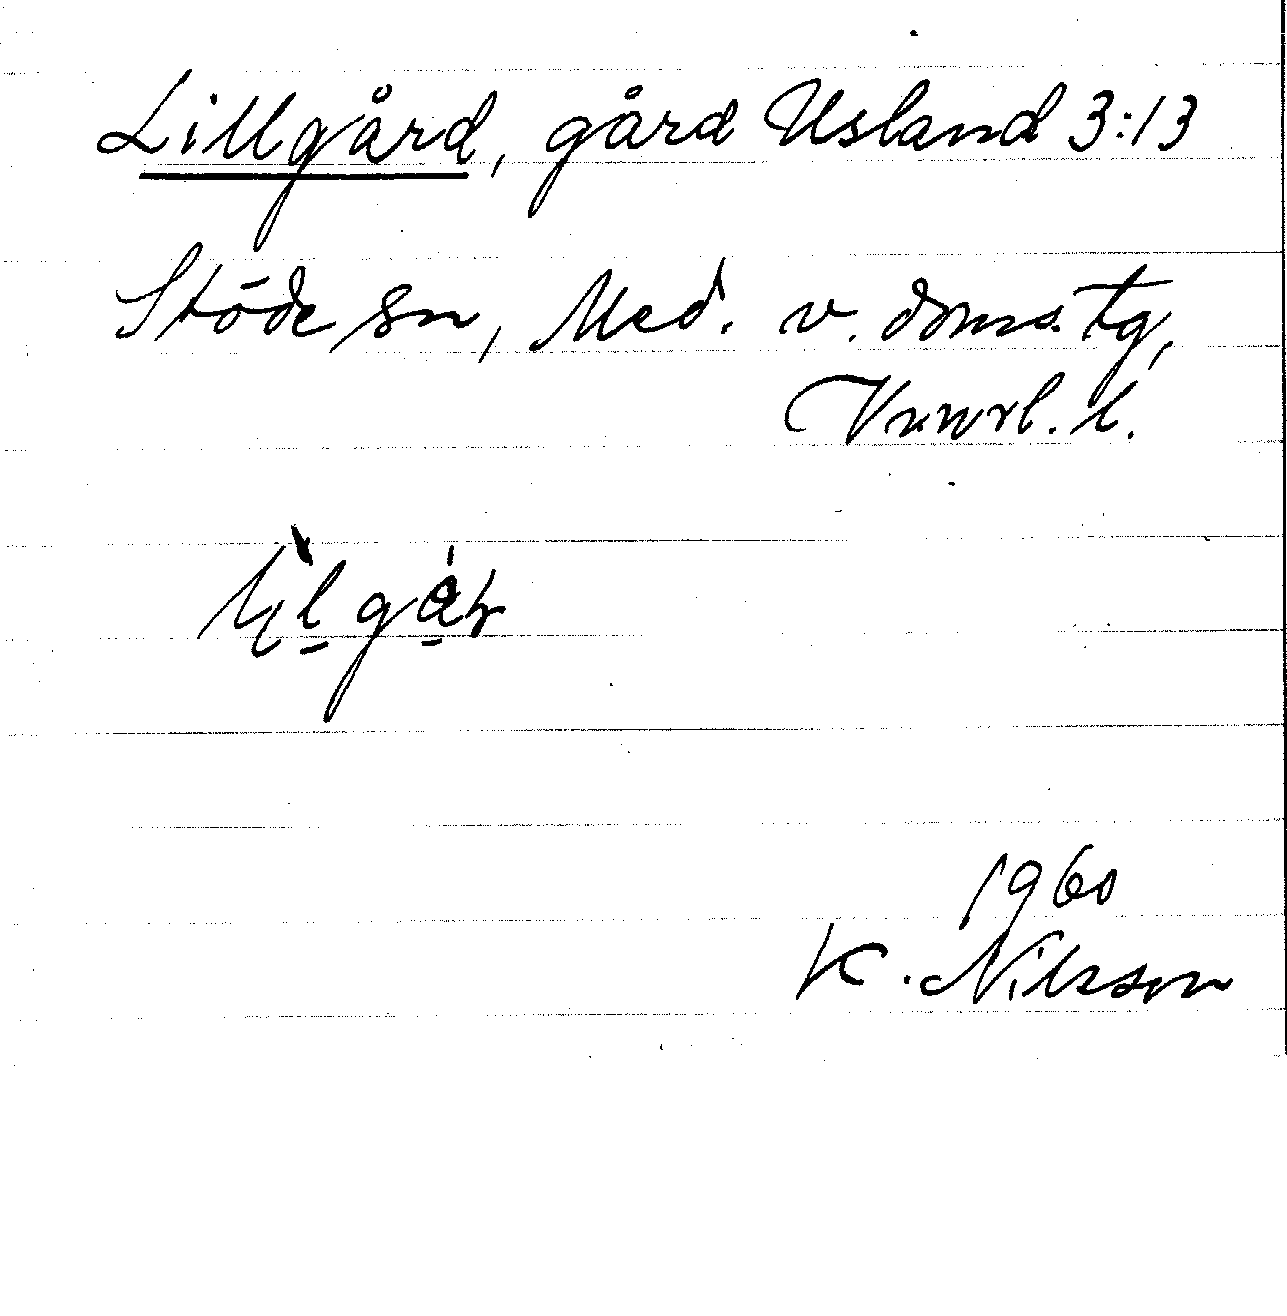 Lillgård, gård Usland 3:13
Stöde sn, Med. v. doms. tg,
Vnrrl. l.
1960
K. Nilsson